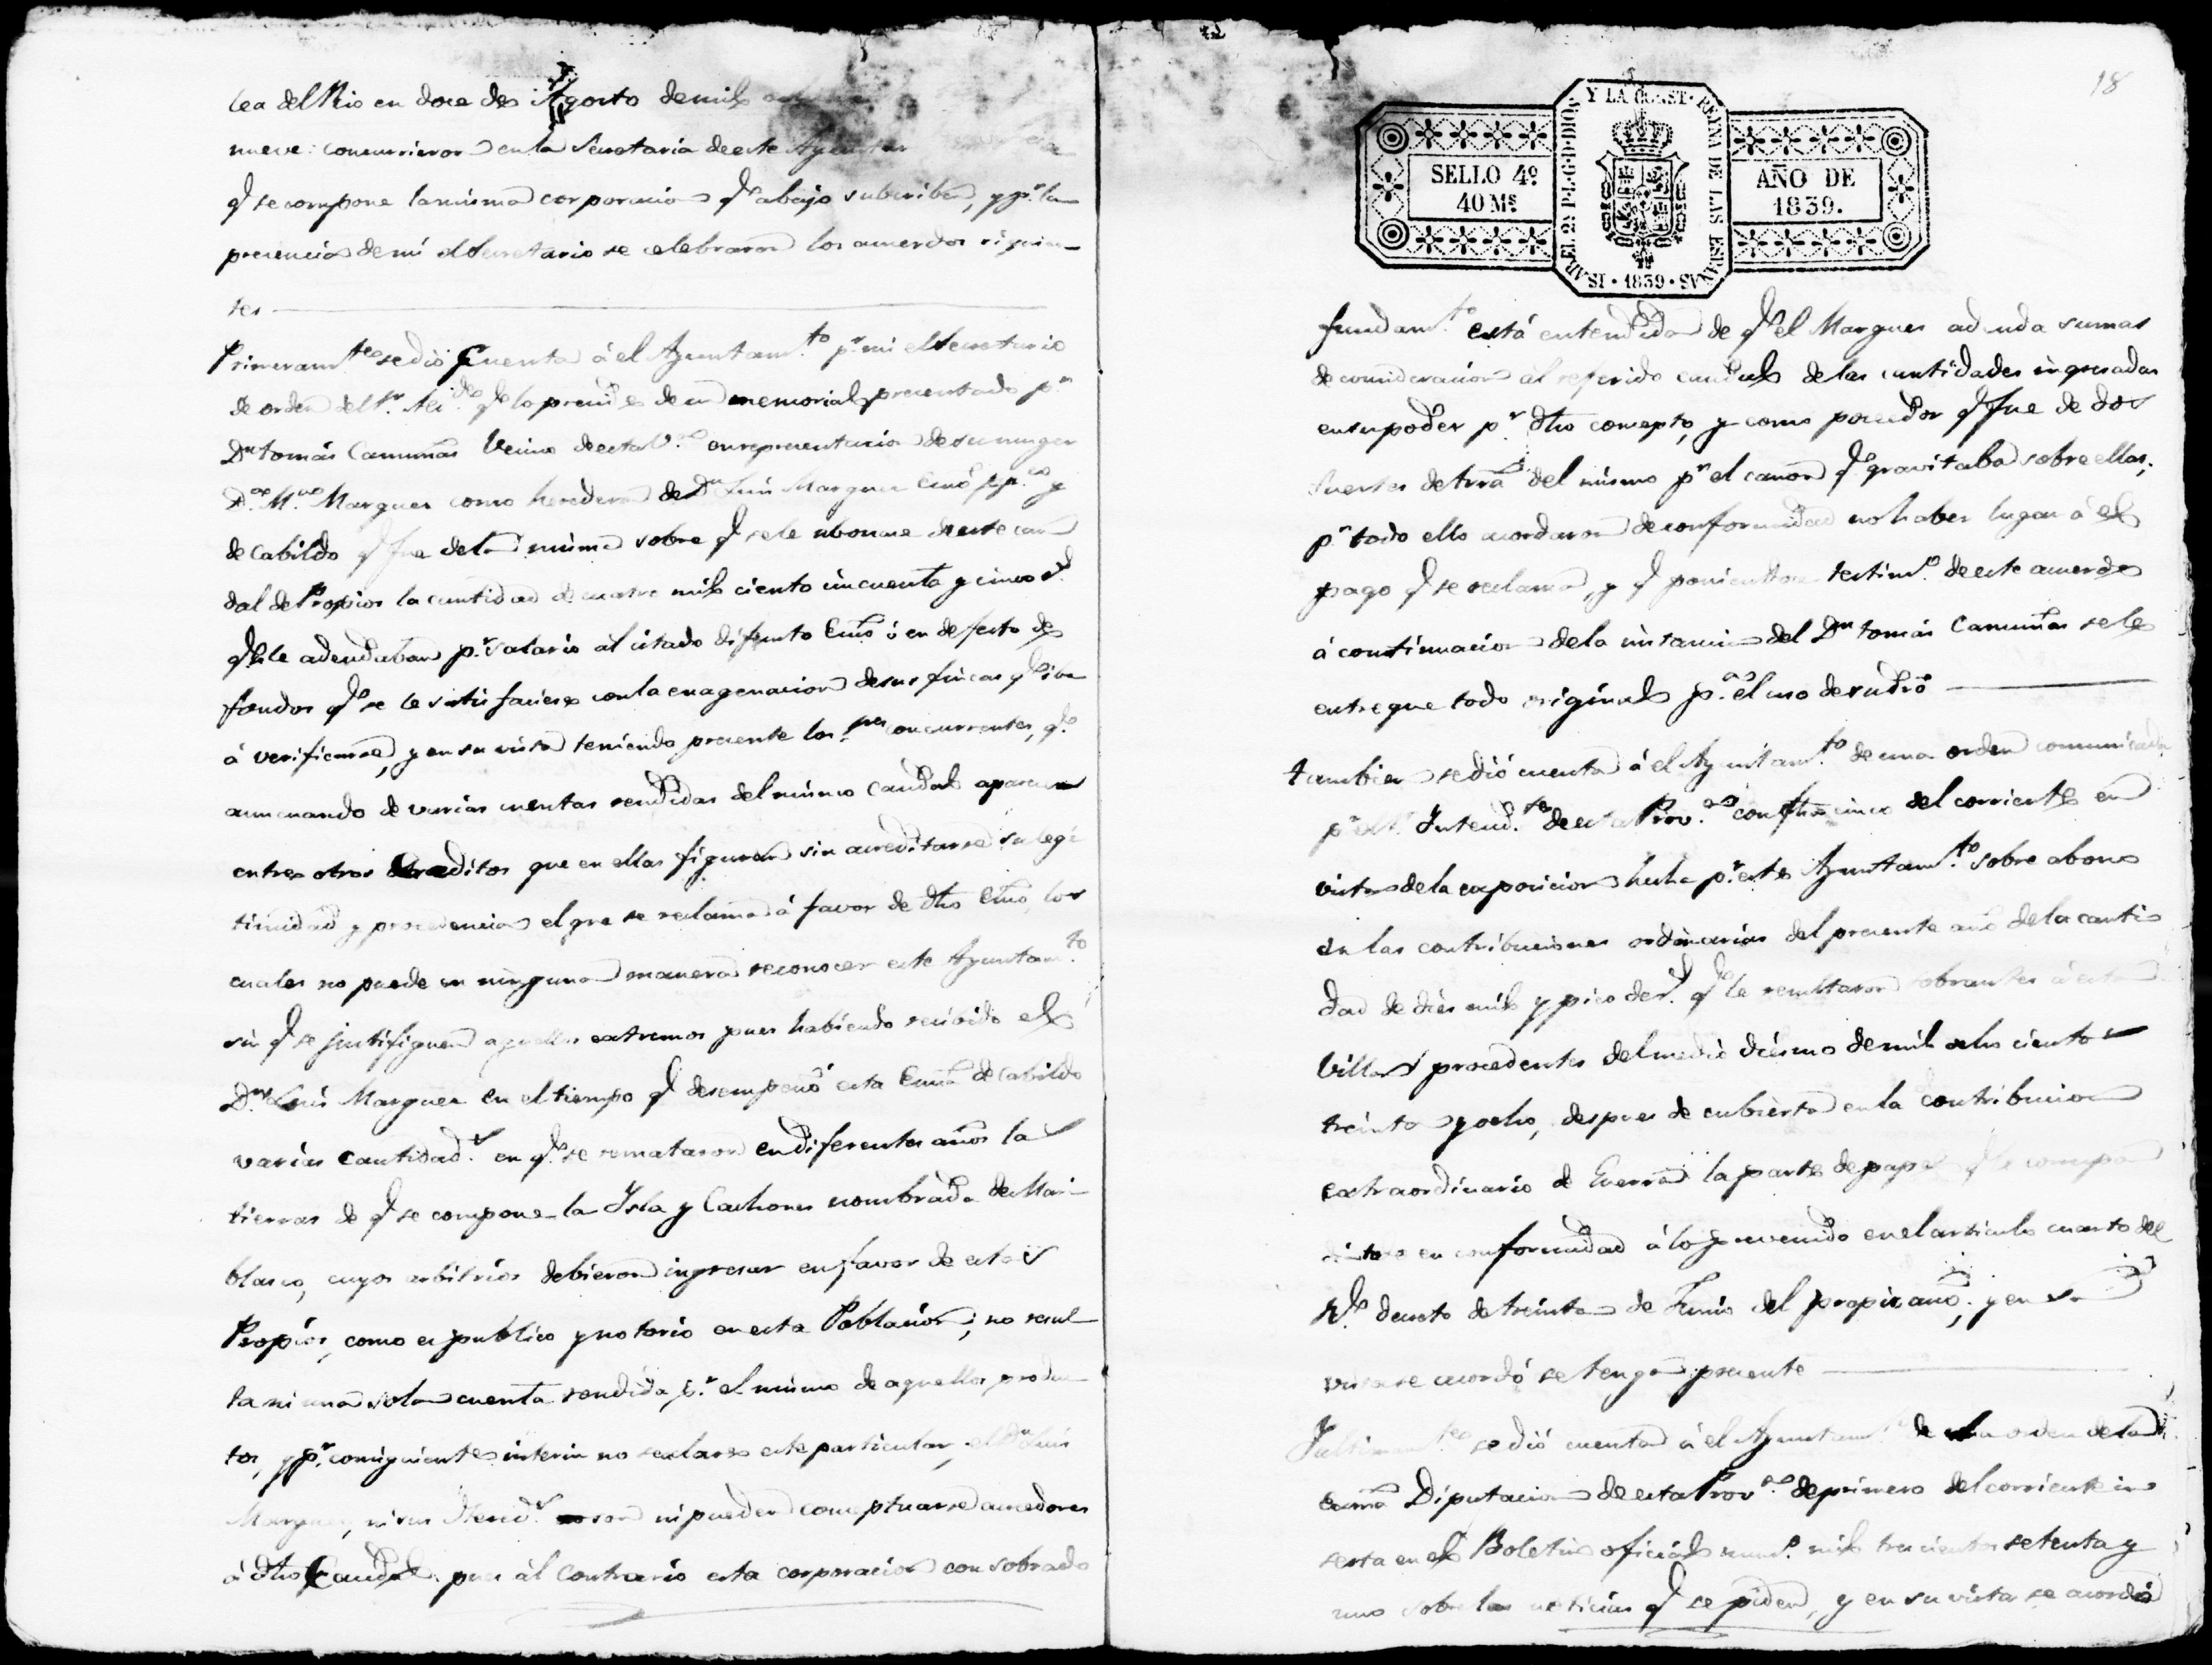 lea del Rio en doce de Agosto de mil
nueve: concurrieron en la Secretaría de este Ayuntam
q.e se compone la misma corporacion q.e abajo subscriben, y p.r la
presencia de mi el Secretario se celebraron los acuerdos siguien-
tes
Primeram.te se dió Cuenta á el Ayuntam.to p.r mi el Secretario
de orden del S.r q.e lo preside de un memorial presentado p.r
D.n tomás Camuñas Vecino de esta V.a en representacion de su muger
D.a M.a Marquez como heredera de D.n Luis Marquez Esno pp.co y
de Cabildo q.e fue de la misma sobre q.e se le abonase de este cau
dal de Propios la cantidad de cuatro mil ciento cincuenta y cinco r.s
q.e se le adeudaban p.r salario al citado difunto Esno ó en defecto de
fondos q.e se le satisfaciese con la enagenacion de sus fincas q.e iba
á verificarse, y en su vista teniendo presente los S.res concurrentes, q.e
aun cuando de varias cuentas rendidas del mismo Caudal aparecen
entre otros creditos que en ellas figuran sin acreditarse su legi
timidad y procedencia el que se reclama á favor de dho Esno, los
cuales no puede en ninguna manera reconocer este Ayuntam.to
sin q.e se justifiquen aquellos extremos pues habiendo recibido el
D.n Luis Marquez en el tiempo q.e desempeñó esta Esnia de Cabildo
varias Cantidad.s en q.e se remataron en diferentes años las
tierras de q.e se compone la Ysla y Cachones nombrada de Mari-
blasco, cuyos arbitrios debieron ingresar en favor de estos
Propios, como es publico y notorio en esta Poblacion; no resul-
ta ni una sola cuenta rendida p.r el mismo de aquellos produc
tos, y p.r consiguiente interin no se aclare este particular, el D.n Luis
Marquez, ni sus Hered.s son ni pueden conceptuarse acreedores
á dho Caudal pues al contrario esta corporacion con sobrado
18
Y LA CONST. REINA DE LAS ESPAÑAS
ISABEL 2ª P.L.G.D.DIOS
SELLO 4º
40 Ms.
AÑO DE
1839.
1839
fundam.to está entendida de q.e el Marquez adeuda sumas
de consideracion al referido caudal de las cantidades ingresadas
en su poder p.r dho concepto, y como poseedor q.e fue de dos
suertes de trra del mismo p.r el canon q.e gravitaba sobre ellas;
p.r todo ello acordaron de conformidad no haber lugar á el
pago q.e se reclama, y q.e poniendose testim.o de este acuerdo
á continuacion de la instancia del D.n tomás Camuñas se le
entregue todo original p.a el uso de su dro
tambien se dió cuenta á el Ayuntam.to de una orden comunicada
p.r el S.r Intend.te de esta Prov.a con fha cinco del corriente en
vista de la exposicion hecha p.r este Ayuntam.to sobre abono
en las contribuciones ordinarias del presente año de la canti
dad de diez mil y pico de r.s q.e le resultaron sobrantes á esta
Villa procedentes del medio diezmo de mil ocho cientos
treinta y ocho, despues de cubierta en la contribucion
extraordinario de Guerra la parte de papel
en conformidad á lo prevenido en el articulo cuarto del
R.l decreto de treinta de Junio del propio año; y en su
vista se acordó se tenga presente
Ultimam.te se dió cuenta á el Ayuntam.to de una orden de la
Exma Diputacion de esta Prov.a de primero del corriente in
serta en el Boletin oficial num.o mil trecientos setenta y
uno sobre las noticias q.e se piden, y en su vista se acordó